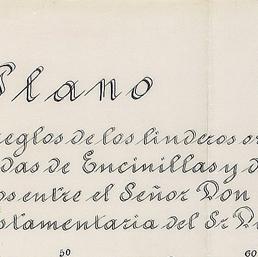 Plano
reglos de los linderos or
das de Encinillas y d
os entre el Señor Don
stamentaria del Sr. D
50 60